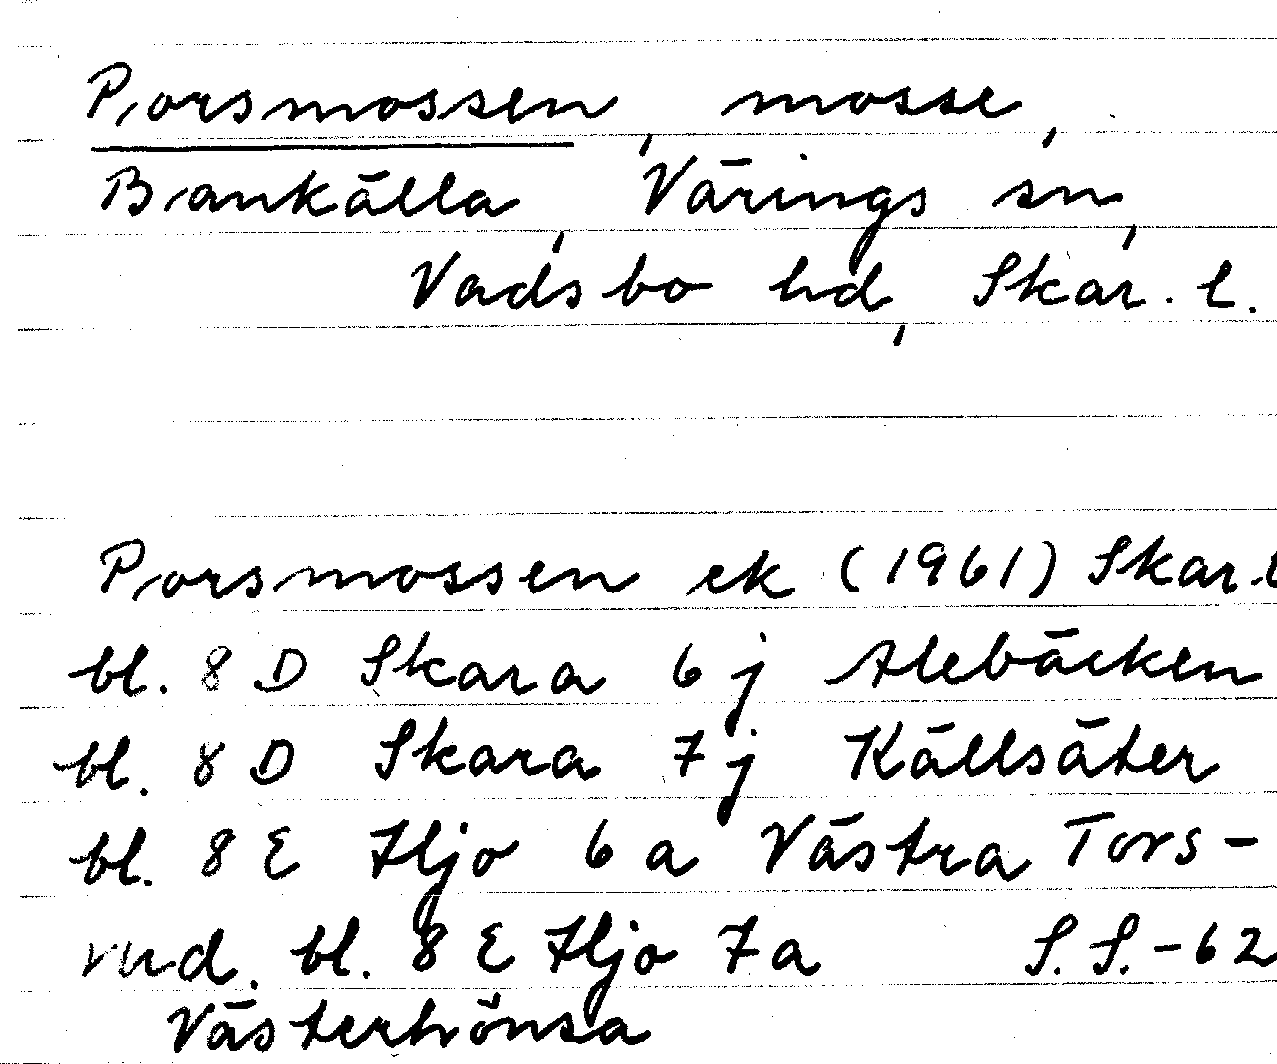 Porsmossen, mosse,
Bankälla, Värings sn,
Vadsbo hd, Skar. l.
Porsmossen ek (1961) Skar. l
bl. 8 D Skara 6 j Alebäcken
bl. 8 D Skara 7 j Källsäter
bl. 8 E Hjo 6 a Västra Tors-
rud. bl. 8 E Hjo 7 a S.S.-62
Västerhönsa